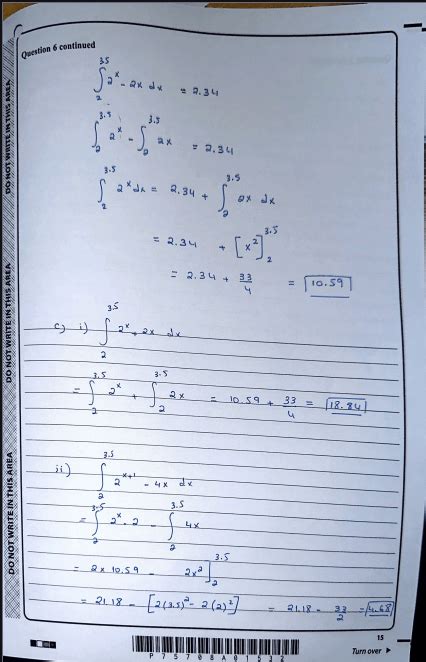 15
Question 6 continued
∫₂^3.5 2^x - 2x dx = 2.34
∫₂^3.5 2^x - ∫₂^3.5 2x = 2.34
∫₂^3.5 2^x dx = 2.34 + ∫₂^3.5 2x dx
= 2.34 + [x²]₂^3.5
= 2.34 + 33/4 = 10.59
c) i) ∫₂^3.5 2^x + 2x dx
= ∫₂^3.5 2^x + ∫₂^3.5 2x = 10.59 + 33/4 = 18.84
ii) ∫₂^3.5 2^(x+1) - 4x dx
= ∫₂^3.5 2^x . 2 - ∫₂^3.5 4x
= 2 x 10.59 - 2x²]₂^3.5
= 21.18 - [2(3.5)² - 2(2)²] = 21.18 - 33/2 = 4.68
DO NOT WRITE IN THIS AREA
DO NOT WRITE IN THIS AREA
DO NOT WRITE IN THIS AREA
P75708A01532
15
Turn over